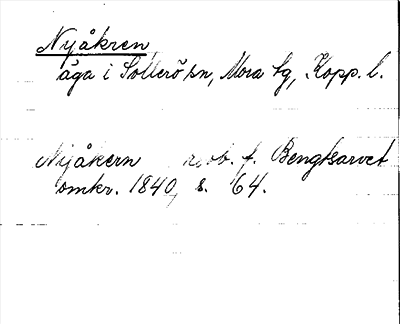 Nyåkren
äga i Sollerö sn, Mora tg, Kopp. l.
Nyåkern rob. f. Bengtsarvet
omkr. 1840, s. 64.